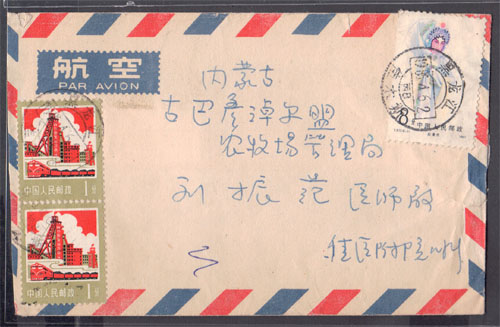 航空
PAR AVION
黑龙江
中国人民邮政
内蒙古
古巴彦淖尔盟
农牧场管理局
刘振范医师
佳医附
中国人民邮政 1分
中国人民邮政 1分